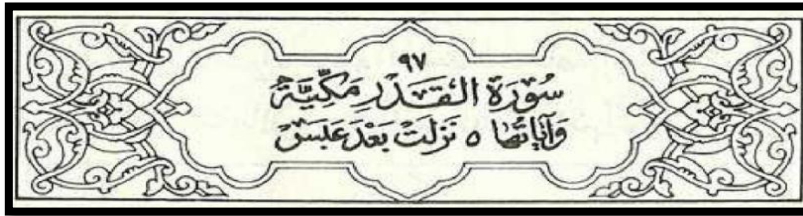 ٩٧
سُورَةُ الْقَدْرِ مَكِّيَّةٌ
وَآيَاتُهَا ٥ نَزَلَتْ بَعْدَ عَبَسَ